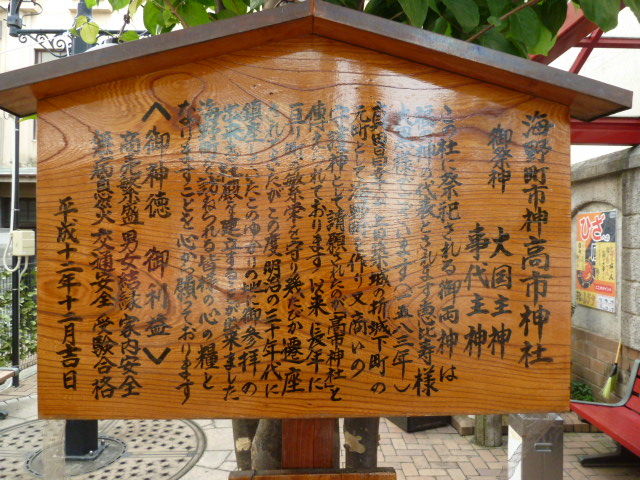 海野町市神高市神社
御祭神
大国主神
事代主神
この社に祭祀される御両神は
福神の代表とされます恵比寿様
大黒様でございます(一五八三年)
真田昌幸公上田築城の折城下町の
元町として海野町を作り又商いの
守護神として請願されたのが高市神社と
伝えられております以来長年に
亘り町の繁栄を守り幾たびか遷座
されましたがこの度明治の三十年代に
鎮座していたこのゆかりの地に御参拝の
出来る社殿を建立する事が出来ました
海野町を訪れる皆様の心の糧と
なりますことを心から願っております
<御神徳 御利益>
商売繁盛 男女結縁 家内安全
無病息災 交通安全 受験合格
平成十二年十二月吉日